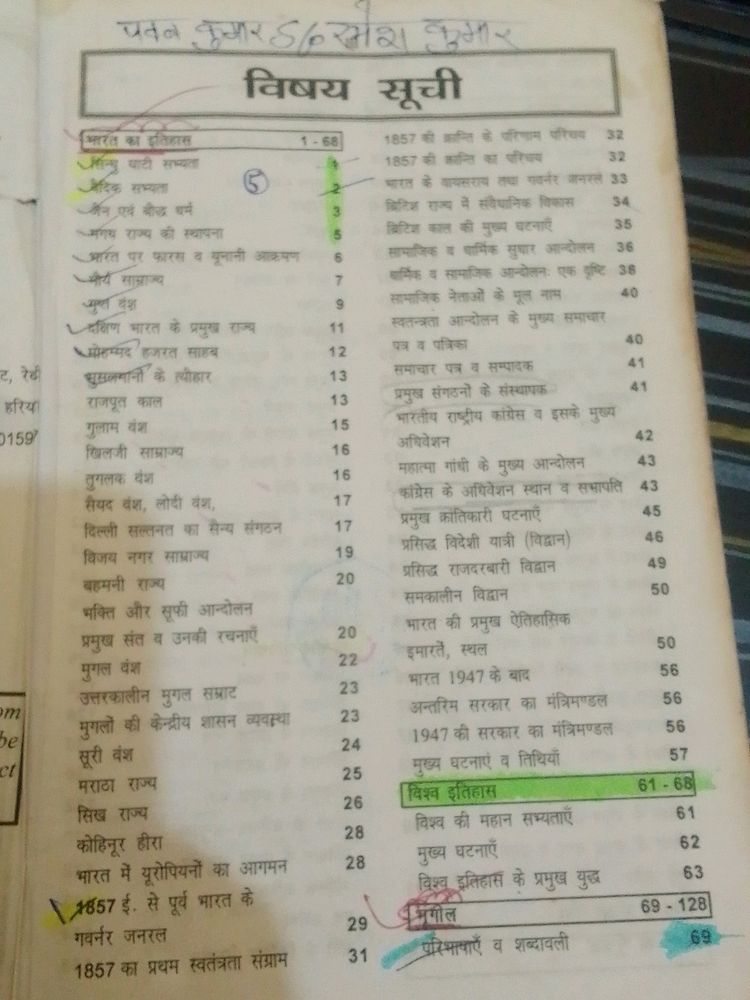 पवन कुमार S/o रमेश कुमार
विषय सूची
भारत का इतिहास 1 - 68
सिन्धु घाटी सभ्यता 1
वैदिक सभ्यता 2
5
जैन एवं बौद्ध धर्म 3
मगध राज्य की स्थापना 5
भारत पर फारस व यूनानी आक्रमण 6
मौर्य साम्राज्य 7
गुप्त वंश 9
दक्षिण भारत के प्रमुख राज्य 11
मोहम्मद हजरत साहब 12
मुसलमानों के त्यौहार 13
राजपूत काल 13
गुलाम वंश 15
खिलजी साम्राज्य 16
तुगलक वंश 16
सैयद वंश, लोदी वंश, 17
दिल्ली सल्तनत का सैन्य संगठन 17
विजय नगर साम्राज्य 19
बहमनी राज्य 20
भक्ति और सूफी आन्दोलन
प्रमुख संत व उनकी रचनाएँ 20
मुगल वंश 22
उत्तरकालीन मुगल सम्राट 23
मुगलों की केन्द्रीय शासन व्यवस्था 23
सूरी वंश 24
मराठा राज्य 25
सिख राज्य 26
कोहिनूर हीरा 28
भारत में यूरोपियनों का आगमन 28
1857 ई. से पूर्व भारत के
गवर्नर जनरल 29
1857 का प्रथम स्वतंत्रता संग्राम 31
1857 की क्रान्ति के परिणाम परिचय 32
1857 की क्रान्ति का परिचय 32
भारत के वायसराय तथा गवर्नर जनरल 33
ब्रिटिश राज्य में संवैधानिक विकास 34
ब्रिटिश काल की मुख्य घटनाएँ 35
सामाजिक व धार्मिक सुधार आन्दोलन 36
धार्मिक व सामाजिक आन्दोलनः एक दृष्टि 38
सामाजिक नेताओं के मूल नाम 40
स्वतन्त्रता आन्दोलन के मुख्य समाचार
पत्र व पत्रिका 40
समाचार पत्र व सम्पादक 41
प्रमुख संगठनों के संस्थापक 41
भारतीय राष्ट्रीय कांग्रेस व इसके मुख्य
अधिवेशन 42
महात्मा गांधी के मुख्य आन्दोलन 43
कांग्रेस के अधिवेशन स्थान व सभापति 43
प्रमुख क्रांतिकारी घटनाएँ 45
प्रसिद्ध विदेशी यात्री (विद्वान) 46
प्रसिद्ध राजदरबारी विद्वान 49
समकालीन विद्वान 50
भारत की प्रमुख ऐतिहासिक
इमारतें, स्थल 50
भारत 1947 के बाद 56
अन्तरिम सरकार का मंत्रिमण्डल 56
1947 की सरकार का मंत्रिमण्डल 56
मुख्य घटनाएं व तिथियाँ 57
विश्व इतिहास 61 - 68
विश्व की महान सभ्यताएँ 61
मुख्य घटनाएँ 62
विश्व इतिहास के प्रमुख युद्ध 63
भूगोल 69 - 128
परिभाषाएँ व शब्दावली 69
ट, रेव
हरिया
0159
om
be
ct